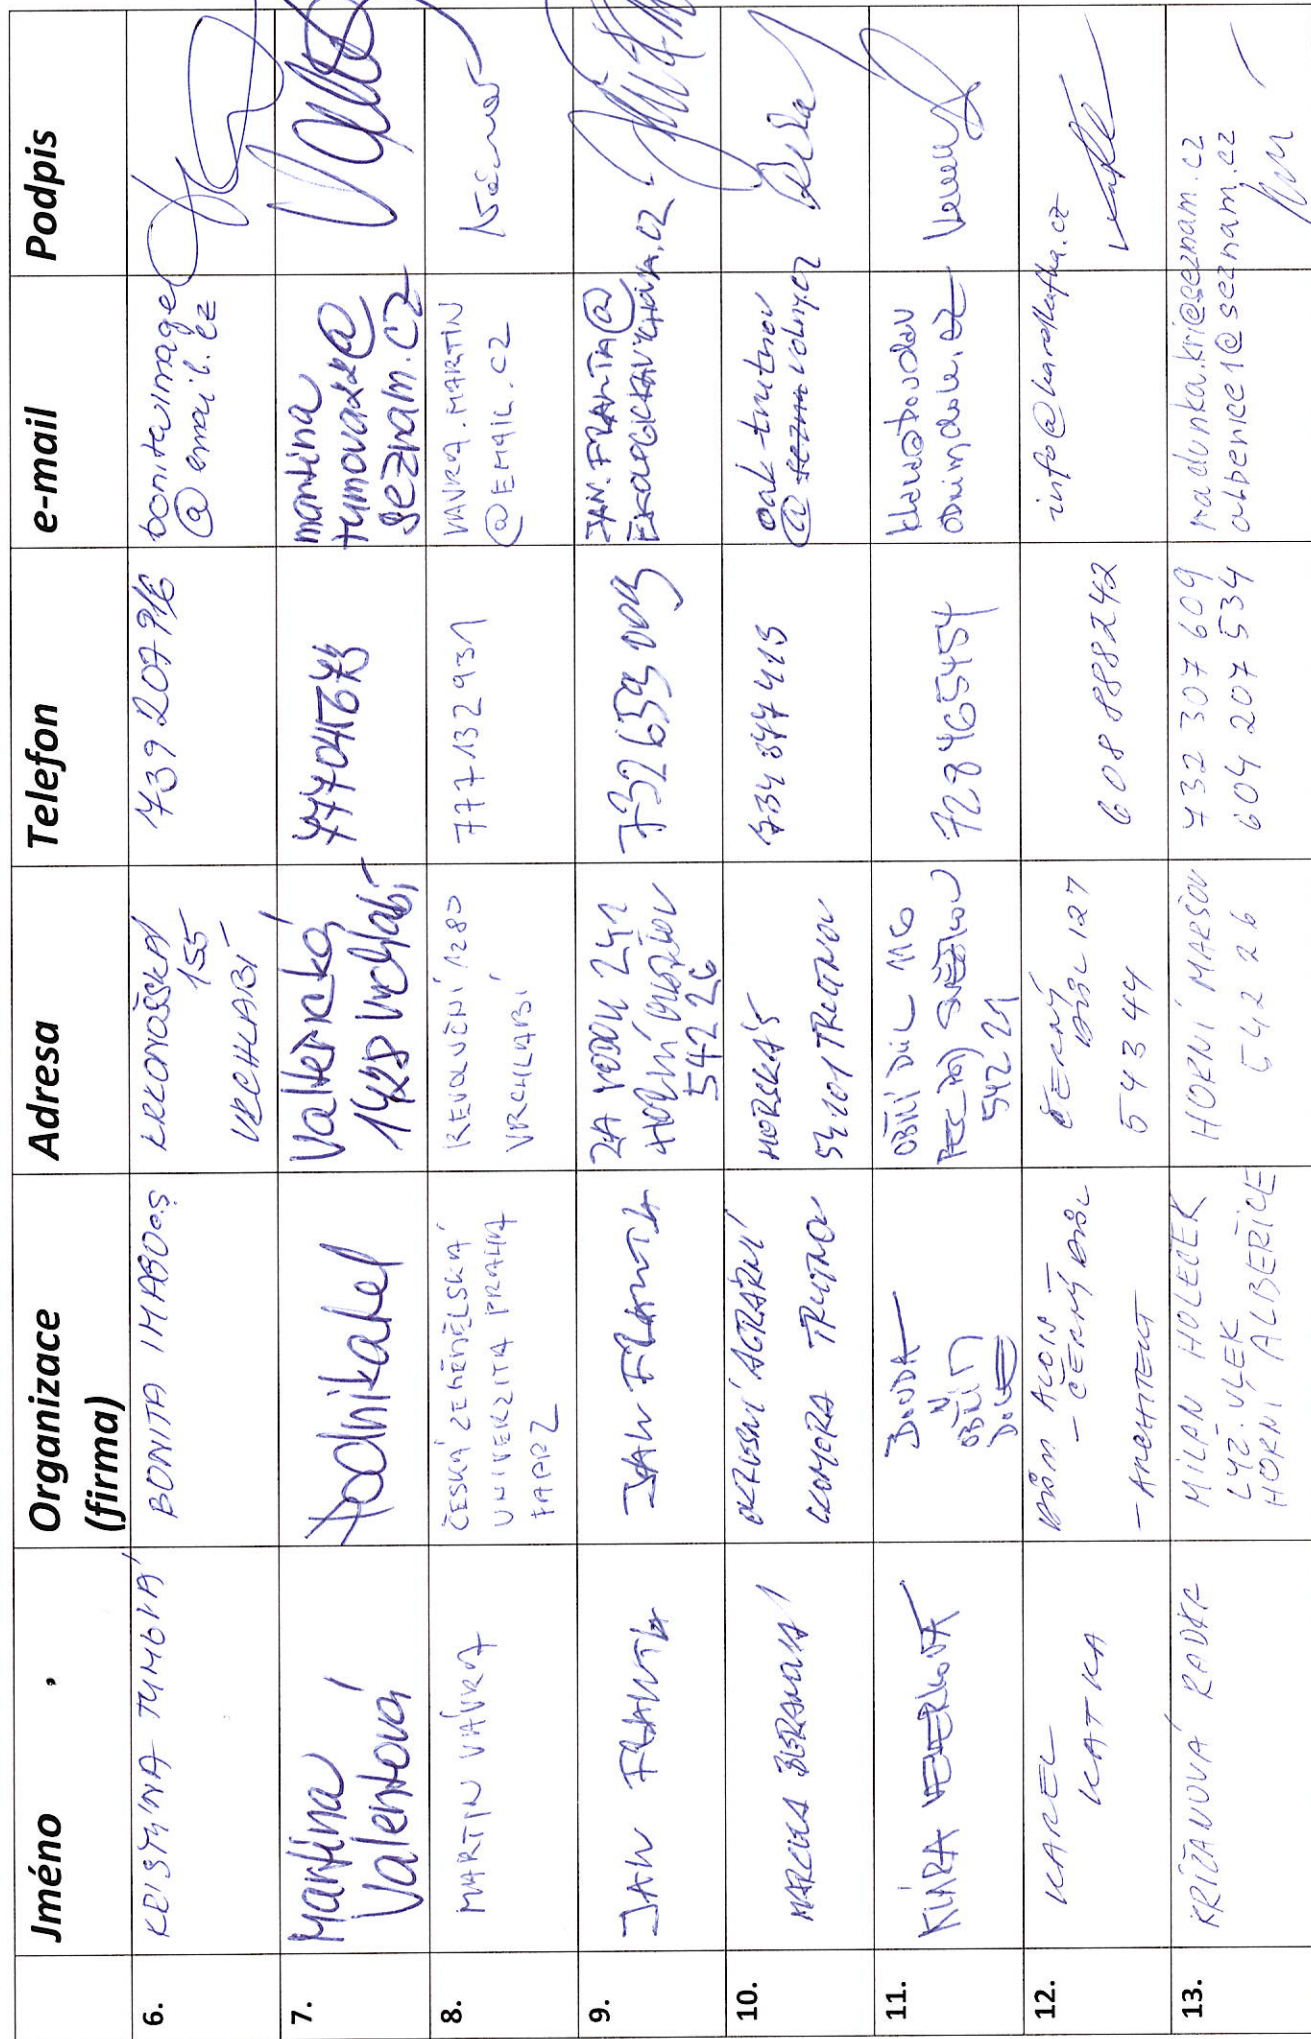 Jméno
Organizace
(firma)
Adresa
Telefon
e-mail
Podpis
6.
KRISTÝNA TUMOVÁ
BONITA IMAGO o.s
KRKONOŠSKÁ
155
VRCHLABÍ
739 207 916
bonitaimage
@email.cz
7.
Martina
Valentová
Podnikatel
Valteřická
1428 Vrchlabí
martina
tumova22@
seznam.cz
8.
MARTIN VÁVRA
ČESKÁ ZEMĚDĚLSKÁ
UNIVERZITA PRAHA
FAPPZ
REVOLUČNÍ 1280
VRCHLABÍ
777 132 931
VAVRA.MARTIN
@EMAIL.CZ
9.
JAN FRANTA
JAN FRANTA
ZA VODOU 241
HORNÍ MARŠOV
542 26
732 659 009
JAN.FRANTA@
EKOLOGICKAVYCHOVA.CZ
10.
OKRESNÍ AGRÁRNÍ
KOMORA TRUTNOV
HORSKÁ 5
541 01 TRUTNOV
734 377 413
oak-trutnov
@ volny.cz
11.
KLÁRA
BOUDA
V
OBŘÍM
DOLE
OBŘÍ DŮL 116
PEC POD SNĚŽKOU
542 21
728465454
12.
KAREL
KAFKA
DŮM ALOIS –
– ČERNÝ DŮL
– ARCHITEKT
ČERNÝ
DŮL 127
543 44
608 888 242
info@karelkafka.cz
13.
KŘÍŽANOVÁ RADKA
MILAN HOLEČEK
LYŽ. VLEK
HORNÍ ALBEŘICE
HORNÍ MARŠOV
542 26
732 307 609
604 207 534
radunka.kri@seznam.cz
alberice1@seznam.cz